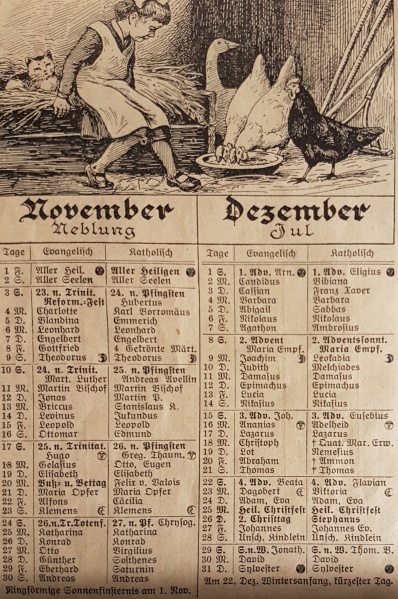 November
Neblung
Tage Evangelisch Katholisch
1 F. Aller Heil. Aller Heiligen
2 S. Aller Seelen Aller Seelen
3 S. 23. n. Trinit. 24. n. Pfingsten
Reform.-Fest Hubertus
4 M. Charlotte Karl Borromäus
5 D. Blandina Emmerich
6 M. Leonhard Leonhard
7 D. Engelbert Engelbert
8 F. Gottfried 4 Gekrönte Märt.
9 S. Theodorus Theodorus
10 S. 24. n. Trinit. 25. n. Pfingsten
Mart. Luther Andreas Avellin
11 M. Martin Bischof Martin Bischof
12 D. Jonas Martin P.
13 M. Briccius Stanislaus K.
14 D. Levinus Jukundus
15 F. Leopold Leopold
16 S. Ottomar Edmund
17 S. 25. n. Trinitat. 26. n. Pfingsten
Hugo Greg. Thaum.
18 M. Gelasius Otto, Eugen
19 D. Elisabeth Elisabeth
20 M. Buß- u. Bettag Felix v. Valois
21 D. Maria Opfer Maria Opfer
22 F. Alfons Cäcilia
23 S. Klemens Klemens
24 S. 26.n.Tr.Totenf. 27. n. Pf. Chrysog.
25 M. Katharina Katharina
26 D. Konrad Konrad
27 M. Otto Virgilius
28 D. Günther Sosthenes
29 F. Eberhard Saturnin
30 S. Andreas Andreas
Ringförmige Sonnenfinsternis am 1. Nov.
Dezember
Jul
Tage Evangelisch Katholisch
1 S. 1. Adv. Arn. 1. Adv. Eligius
2 M. Candidus Bibiana
3 D. Cassian Franz Xaver
4 M. Barbara Barbara
5 D. Abigail Sabbas
6 F. Nikolaus Nikolaus
7 S. Agathon Ambrosius
8 S. 2. Advent 2. Adventsonnt.
Maria Empf. Maria Empf.
9 M. Joachim Leokadia
10 D. Judith Melchiades
11 M. Damasus Damasus
12 D. Epimachus Epimachus
13 F. Lucia Lucia
14 S. Nikasius Nikasius
15 S. 3. Adv. Joh. 3. Adv. Eusebius
16 M. Ananias Adelheid
17 D. Lazarus Lazarus
18 M. Christoph † Quat. Mar. Erw.
19 D. Lot Nemesius
20 F. Abraham † Ammon
21 S. Thomas † Thomas
22 S. 4. Adv. Beata 4. Adv. Flavian
23 M. Dagobert Viktoria
24 D. Adam, Eva Adam, Eva
25 M. Heil. Christfest Heil. Christfest
26 D. 2. Christtag Stephanus
27 F. Johannes Johannes Ev.
28 S. Unsch. Kindlein Unsch. Kindlein
29 S. S.n.W. Jonath. S. n. W. Thom. B.
30 M. David David
31 D. Sylvester Sylvester
Am 22. Dez. Wintersanfang, kürzester Tag.